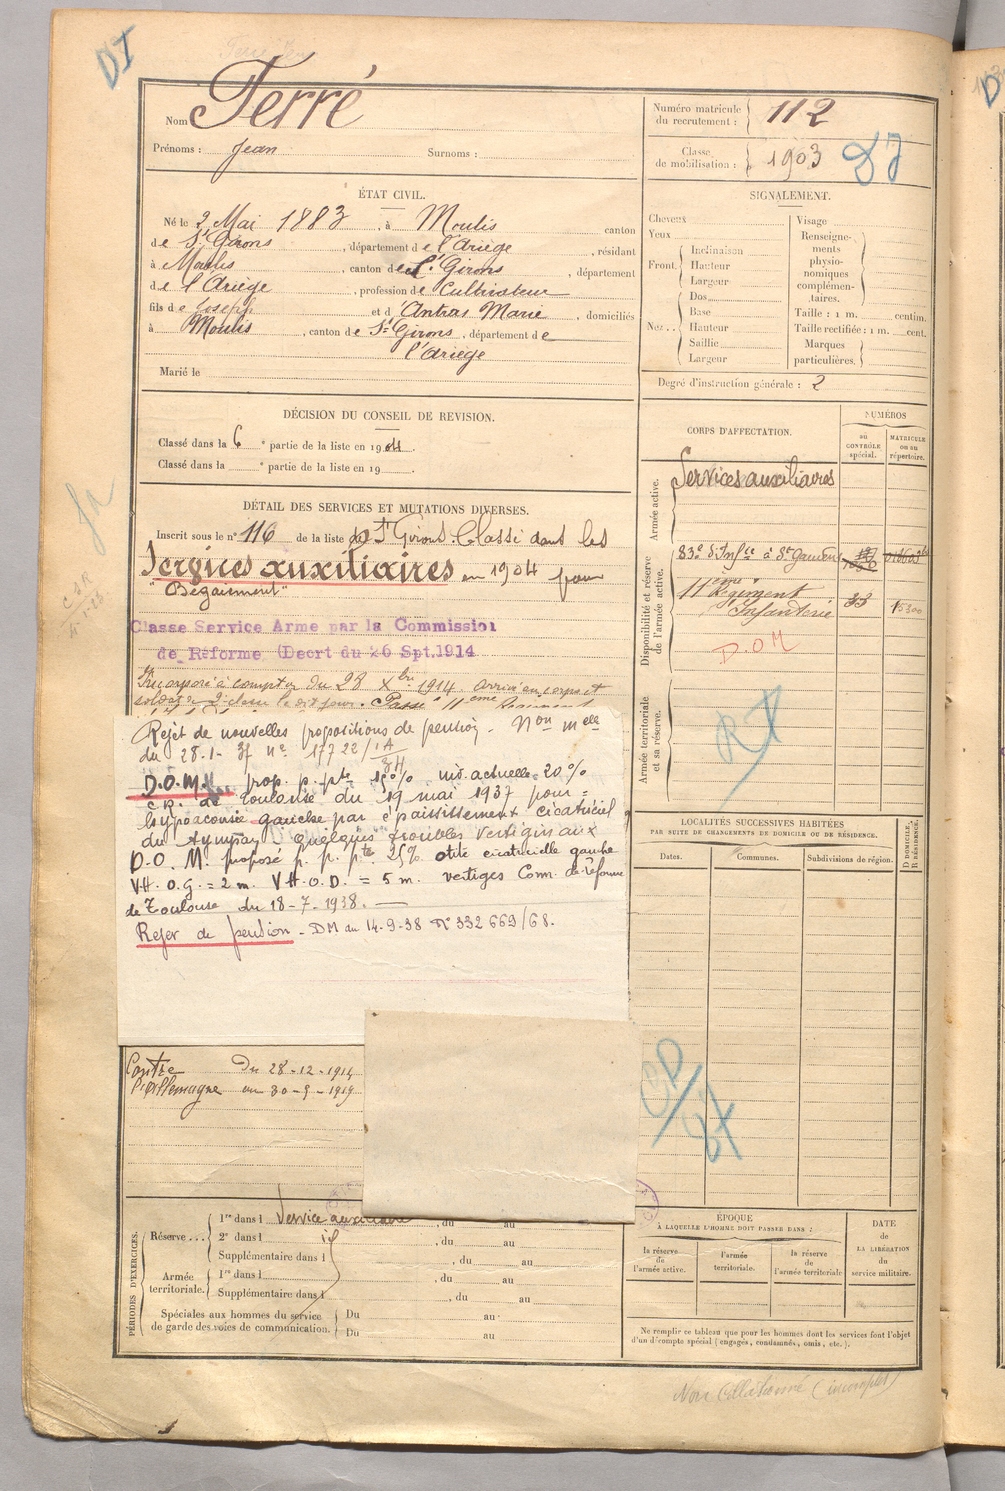 DI
Nom Ferré
Prénoms : Jean Surnoms :
Numéro matricule du recrutement : 112
Classe de mobilisation : 1903
ÉTAT CIVIL.
Né le 2 Mai 1883, à Moulis canton
de St Girons, département de l'Ariège, résidant
à Moulis, canton de St Girons, département
de l'Ariège, profession de Cultivateur
fils de Joseph et d'Antras Marie, domiciliés
à Moulis, canton de St Girons, département de
l'Ariège
Marié le
SIGNALEMENT.
Cheveux
Yeux
Front. Inclinaison
Hauteur
Largeur
Nez.. Dos
Base
Hauteur
Saillie
Largeur
Visage
Renseignements physionomiques complémentaires.
Taille : 1 m. centim.
Taille rectifiée : 1 m. cent.
Marques particulières.
Degré d'instruction générale : 2
DÉCISION DU CONSEIL DE REVISION.
Classé dans la 6e partie de la liste en 1904.
Classé dans la e partie de la liste en 19 .
DÉTAIL DES SERVICES ET MUTATIONS DIVERSES.
Inscrit sous le n° 116 de la liste de St Girons Classé dans les
Services auxiliaires en 1904 pour
"Bégaiement"
Classe Service Arme par la Commission
de Réforme (Decrt du 26 Spt.1914
Incorporé à compter du 28 Xbre 1914 arrivé au corps et
soldat de 2e classe le dit jour. Passé 11ème Régiment
Rejet de nouvelles propositions de pension - Non melle
du 28-1-37 n° 17722/
D.O.M. prop. p. pte 15% inv. actuelle 20%
C.R. de Toulouse du 19 mai 1937 pour =
hypoacousie gauche par épaississement cicatriciel
du tympan, quelques troubles vertigineux
D.O.M. propose p. p. pte 25% otite cicatricielle gauche
VH.O.G. = 2 m. VH.O.D. = 5 m. vertiges Com. de réforme
de Toulouse du 18-7-1938.
Rejet de pension - DM du 14-9-38 N° 332669/68.
Contre l'Allemagne
Du 28-12-1914
au 30-9-1919
CORPS D'AFFECTATION.
NUMÉROS
au CONTRÔLE spécial.
MATRICULE ou au répertoire.
Armée active.
Services auxiliaires
Disponibilité et réserve de l'armée active.
83e d'Infie à St Gaudens
11ème Régiment
d'Infanterie 33 15300
D.O.M
Armée territoriale et sa réserve.
LOCALITÉS SUCCESSIVES HABITÉES
PAR SUITE DE CHANGEMENTS DE DOMICILE OU DE RÉSIDENCE.
Dates. Communes. Subdivisions de région.
D DOMICILE, R RÉSIDENCE.
PÉRIODES D'EXERCICES.
Réserve... 1re dans l Service auxiliaire, du au
2e dans l , du au
Supplémentaire dans l , du au
Armée territoriale. 1re dans l , du au
Supplémentaire dans l , du au
Spéciales aux hommes du service de garde des voies de communication. Du au
Du au
ÉPOQUE
À LAQUELLE L'HOMME DOIT PASSER DANS :
la réserve de l'armée active.
l'armée territoriale.
la réserve de l'armée territoriale
DATE de LA LIBÉRATION du service militaire.
Ne remplir ce tableau que pour les hommes dont les services font l'objet
d'un décompte spécial (engagés, condamnés, omis, etc.).
Non Collationné (incomplet)